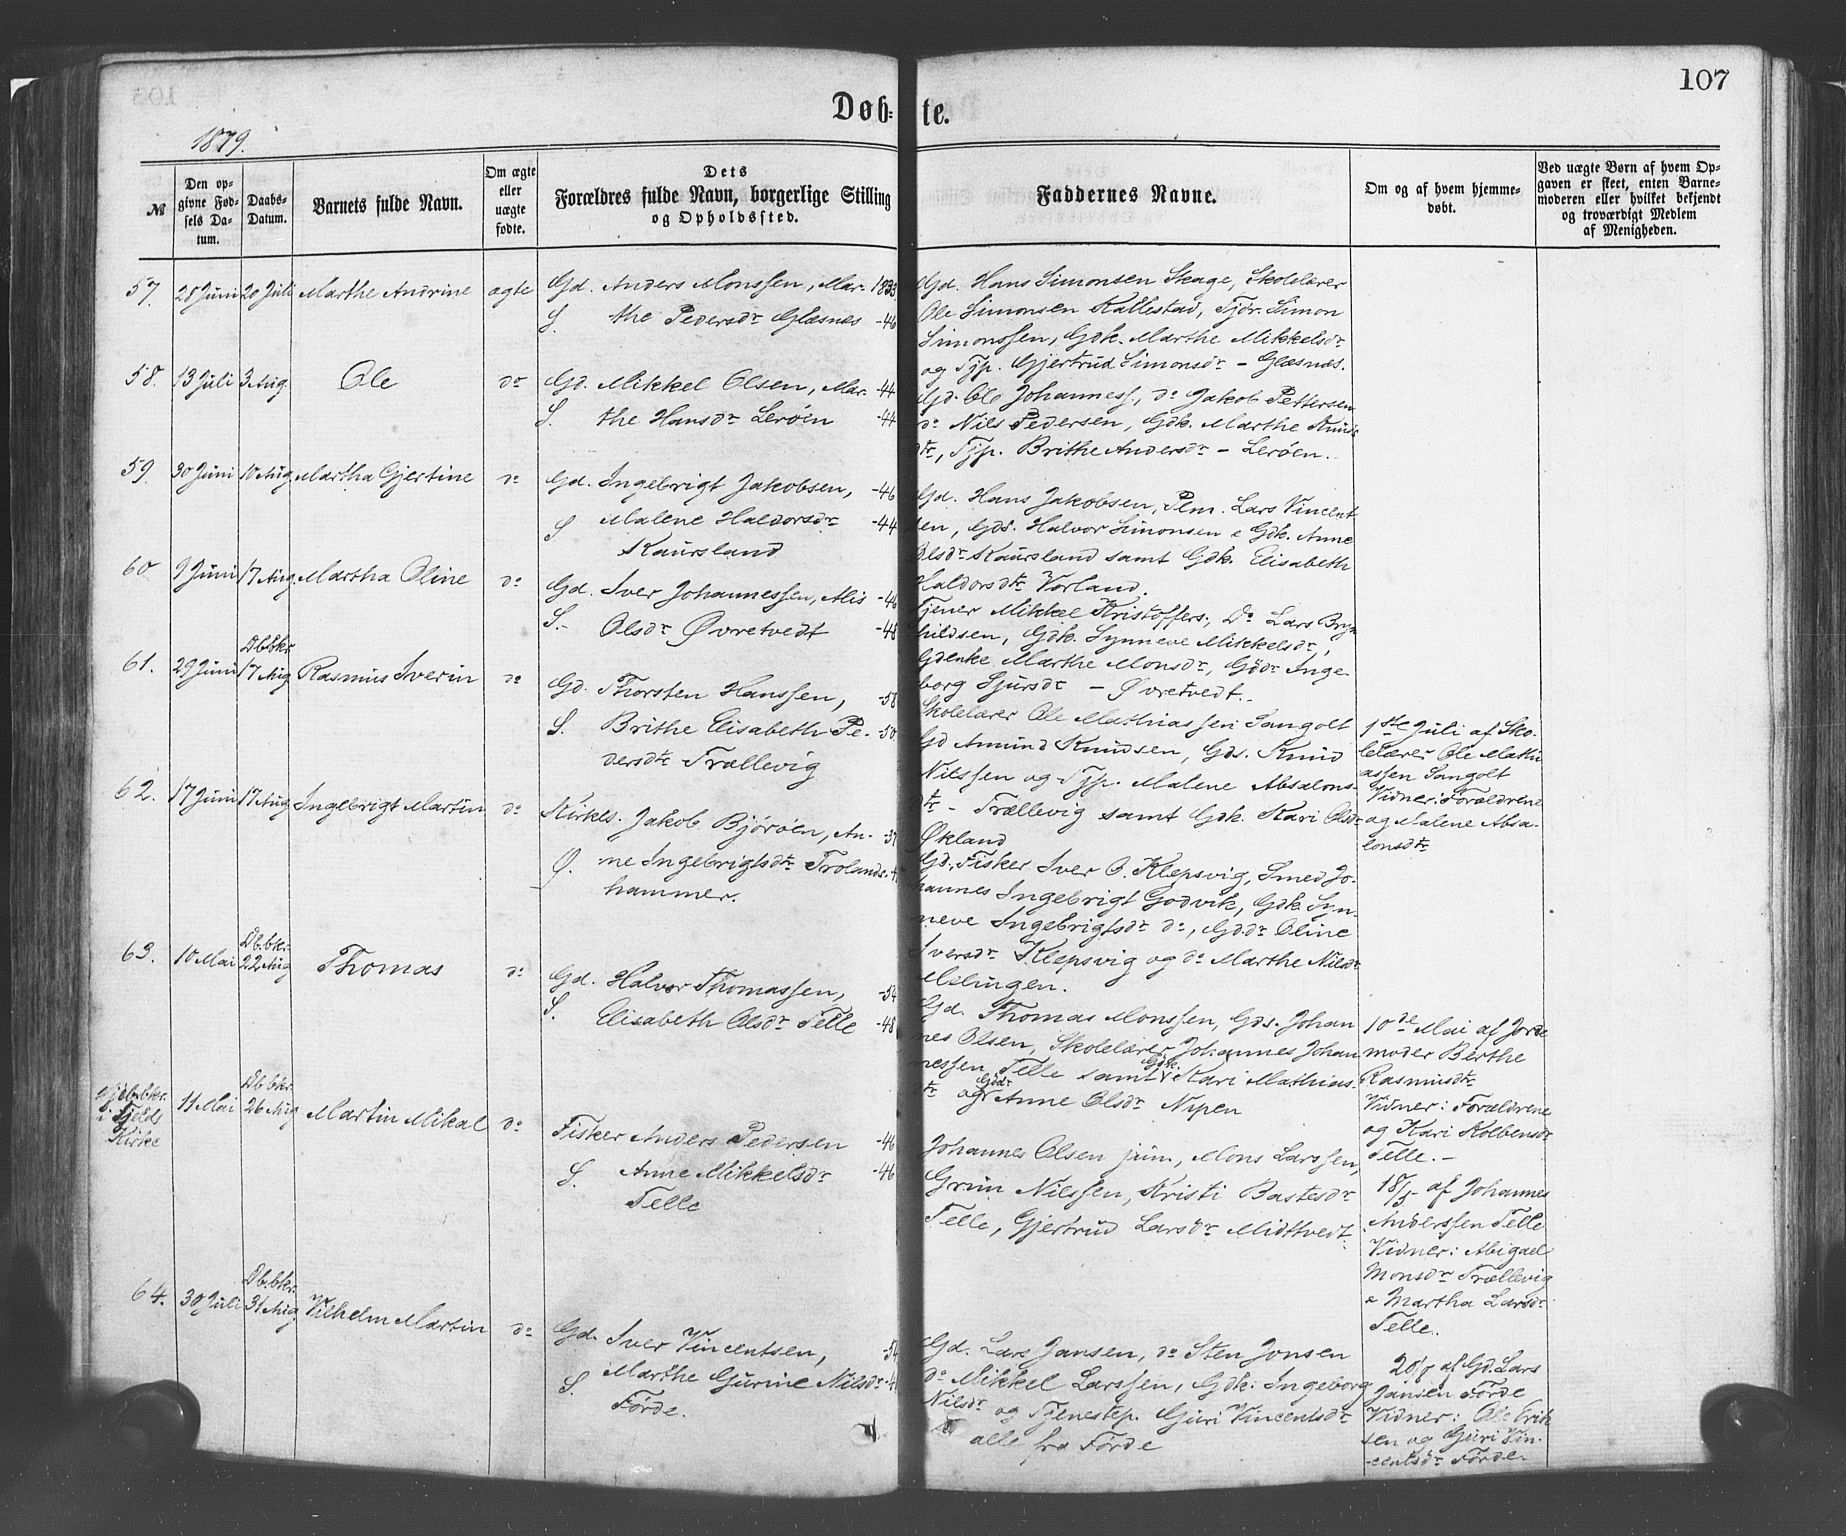 107
Døb-te.
1879.
№
Den op-
givne Fød-
sels Da-
tum.
Daabs-
Datum.
Barnets fulde Navn.
Om ægte
eller
uægte
fødte.
Dets
Forældres fulde Navn, borgerlige Stilling
og Opholdssted.
Faddernes Navne.
Om og af hvem hjemme-
døbt.
Ved uægte Børn af hvem Op-
gaven er skeet, enten Barne-
moderen eller hvilket bekjendt
og troværdigt Medlem
af Menigheden.
57. 28 Juni 20 Juli Marthe Andrine ægte
Gd. Anders Monssen, Mar- 1833
S. the Pedersdr Glæsnæs -46
Gd. Hans Simonsen Skage, Skolelærer
Ole Simonsen Kallestad, Tjdr. Simon
Simonssen, Gdk. Marthe Mikkelsdr
og Tjp. Gjertrud Simonsdr - Glæsnæs.
58. 13 Juli 3 Aug. Ole do
Gd. Mikkel Olsen, Mar- -44
S. the Hansdr Lerøen -44
Gd. Ole Johanness, do Jakob Pettersen
do Nils Pedersen, Gdk. Marthe Knuds
dtr, Tjp. Brithe Andersdr - Lerøen.
59. 30 Juni 10 Aug Martha Gjertine do
Gd. Ingebrigt Jakobsen, -46
S Malene Haldorsdr -44
Kaursland
Gd. Hans Jakobsen, Plm. Lars Vincent
sen, Gds. Halvor Simonsen & Gdk. Anne
Olsdr Kaursland samt Gdk. Elisabeth
Haldorsdtr Vorland.
60 9 Juni 17 Aug. Martha Oline do
Gd. Iver Johannessen, Alis -46
S.- Olsdr Øvretvedt -48
Tjener Mikkel Kristoffers., Do Lars Bryn
hildsen, Gdk. Synneve Mikkelsdr,
Gdenke Marthe Monsdr, Gddr Inge-
borg Sjursdr - Øvretvedt.
61. 29 Juni Dbbkr. 17 Aug Rasmus Sverin do
Gd. Thorsten Hanssen, -58
S. Brithe Elisabeth Pe- -50
dersdtr Trællevig
Skolelærer Ole Mathiassen Sangolt
Gd Amund Knudsen, Gds. Knud
Nilssen og Tjp. Malene Absalons-
dtr - Trællevig samt Gdk. Kari Olsdr
Økland
1ste Juli af Sko-
lelærer Ole Mathi
assen Sangolt
Vidner: Forældrene
og Malene Absa-
lonsdtr
62. 17 Juni 17 Aug Ingebrigt Martin do
Kirkes. Jakob Bjørøen, An- -37
Ø. ne Ingebrigtsdtr Trolands-
hammer.
Gd., Fisker Iver O. Klepsvig, Smed Jo-
hannes Ingebrigt Godvik, Gdk. Syn-
neve Ingebrigtsdr do, Gd.dr Oline
Iversdr Klepsvig og do Marthe Nilsdr
Alslingen.
63. 10 Mai Db.bkr. 22 Aug Thomas do
Gd. Halvor Thomassen, -54
S. Elisabeth Olsdr Telle -48
Gd. Thomas Monssen, Gds. Johan
nes Olsen, Skolelærer Johannes Johan
nessen Telle samt Gdk. Kari Mathias-
dtr og Gddr Anne Olsdr Nipen
10de Mai af Jorde
moder Berthe
Rasmusdtr
Vidner: Forældrene
og Kari Kolbensdr
Telle.-
i Fjelds
Kirke
11 Mai Db.bkr. 26 Aug Martin Mikal do
Fisker Anders Pedersen -46
S. Anne Mikkelsdr -46
Telle
Johannes Olsen jun., Mons Larssen,
Grun Nilssen, Kristi Bastesdr
Telle, Gjertrud Larsdr Midttvedt.
18/5 af Johannes
Anderssen Telle
Vidner: Abigael
Monsdr Trællevig
& Martha Larsdr
Telle.
64. 30 Juli Db.bkr. 31 Aug Vilhelm Martin do
Gd. Iver Vincentsen, -54
S. Marthe Gurine Nilsdr
Förde.
Gd. Lars Jansen, do Sten Jonsen
do Mikkel Larssen, Gdk: Ingeborg
Nilsdr og Tjenestep. Guri Vincentsdr
alle fra Förde
20/8 af Gd. Lars
Jansen Förde
Vidner: Ole Erik
sen og Guri Vin-
centsdr Förde